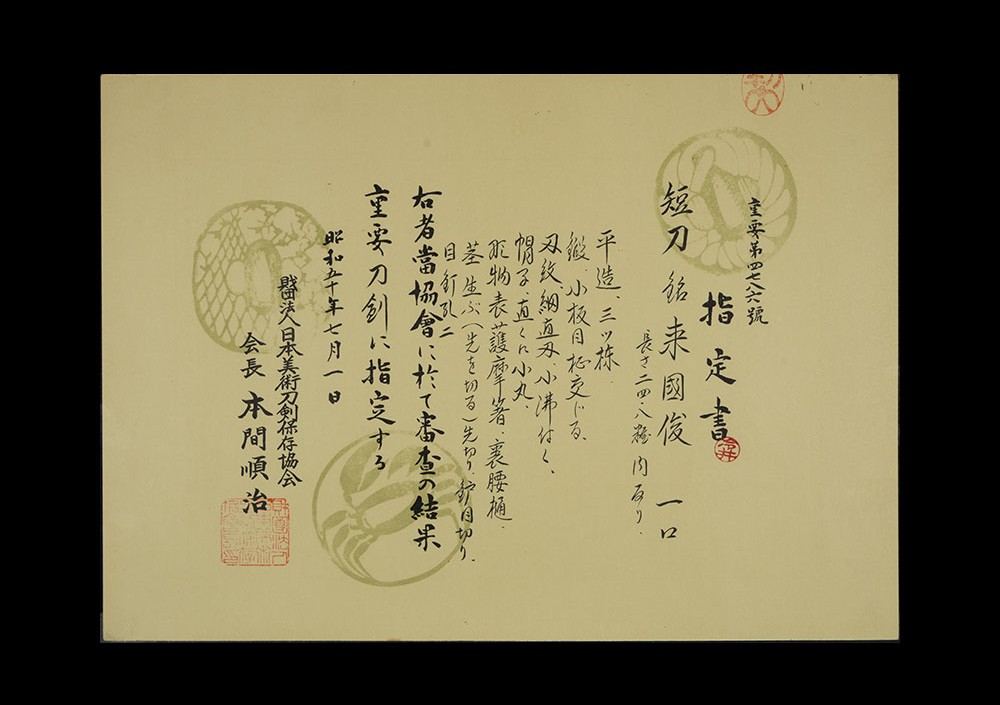 重要第四七八六號
指定書
短刀 銘 来國俊 一口
長サ二四・八糎 内反り.
平造、三ツ棟.
鍛、小板目柾交じる.
刃紋、細直刃、小沸付く.
帽子、直くに小丸.
彫物表護摩箸、裏腰樋.
茎生ぶ(先を切る)先切り.鑢目切り.
目釘孔二
右者當協會に於て審査の結果
重要刀剣に指定する
昭和五十年七月一日
財団法人日本美術刀剣保存協会
会長 本間順治